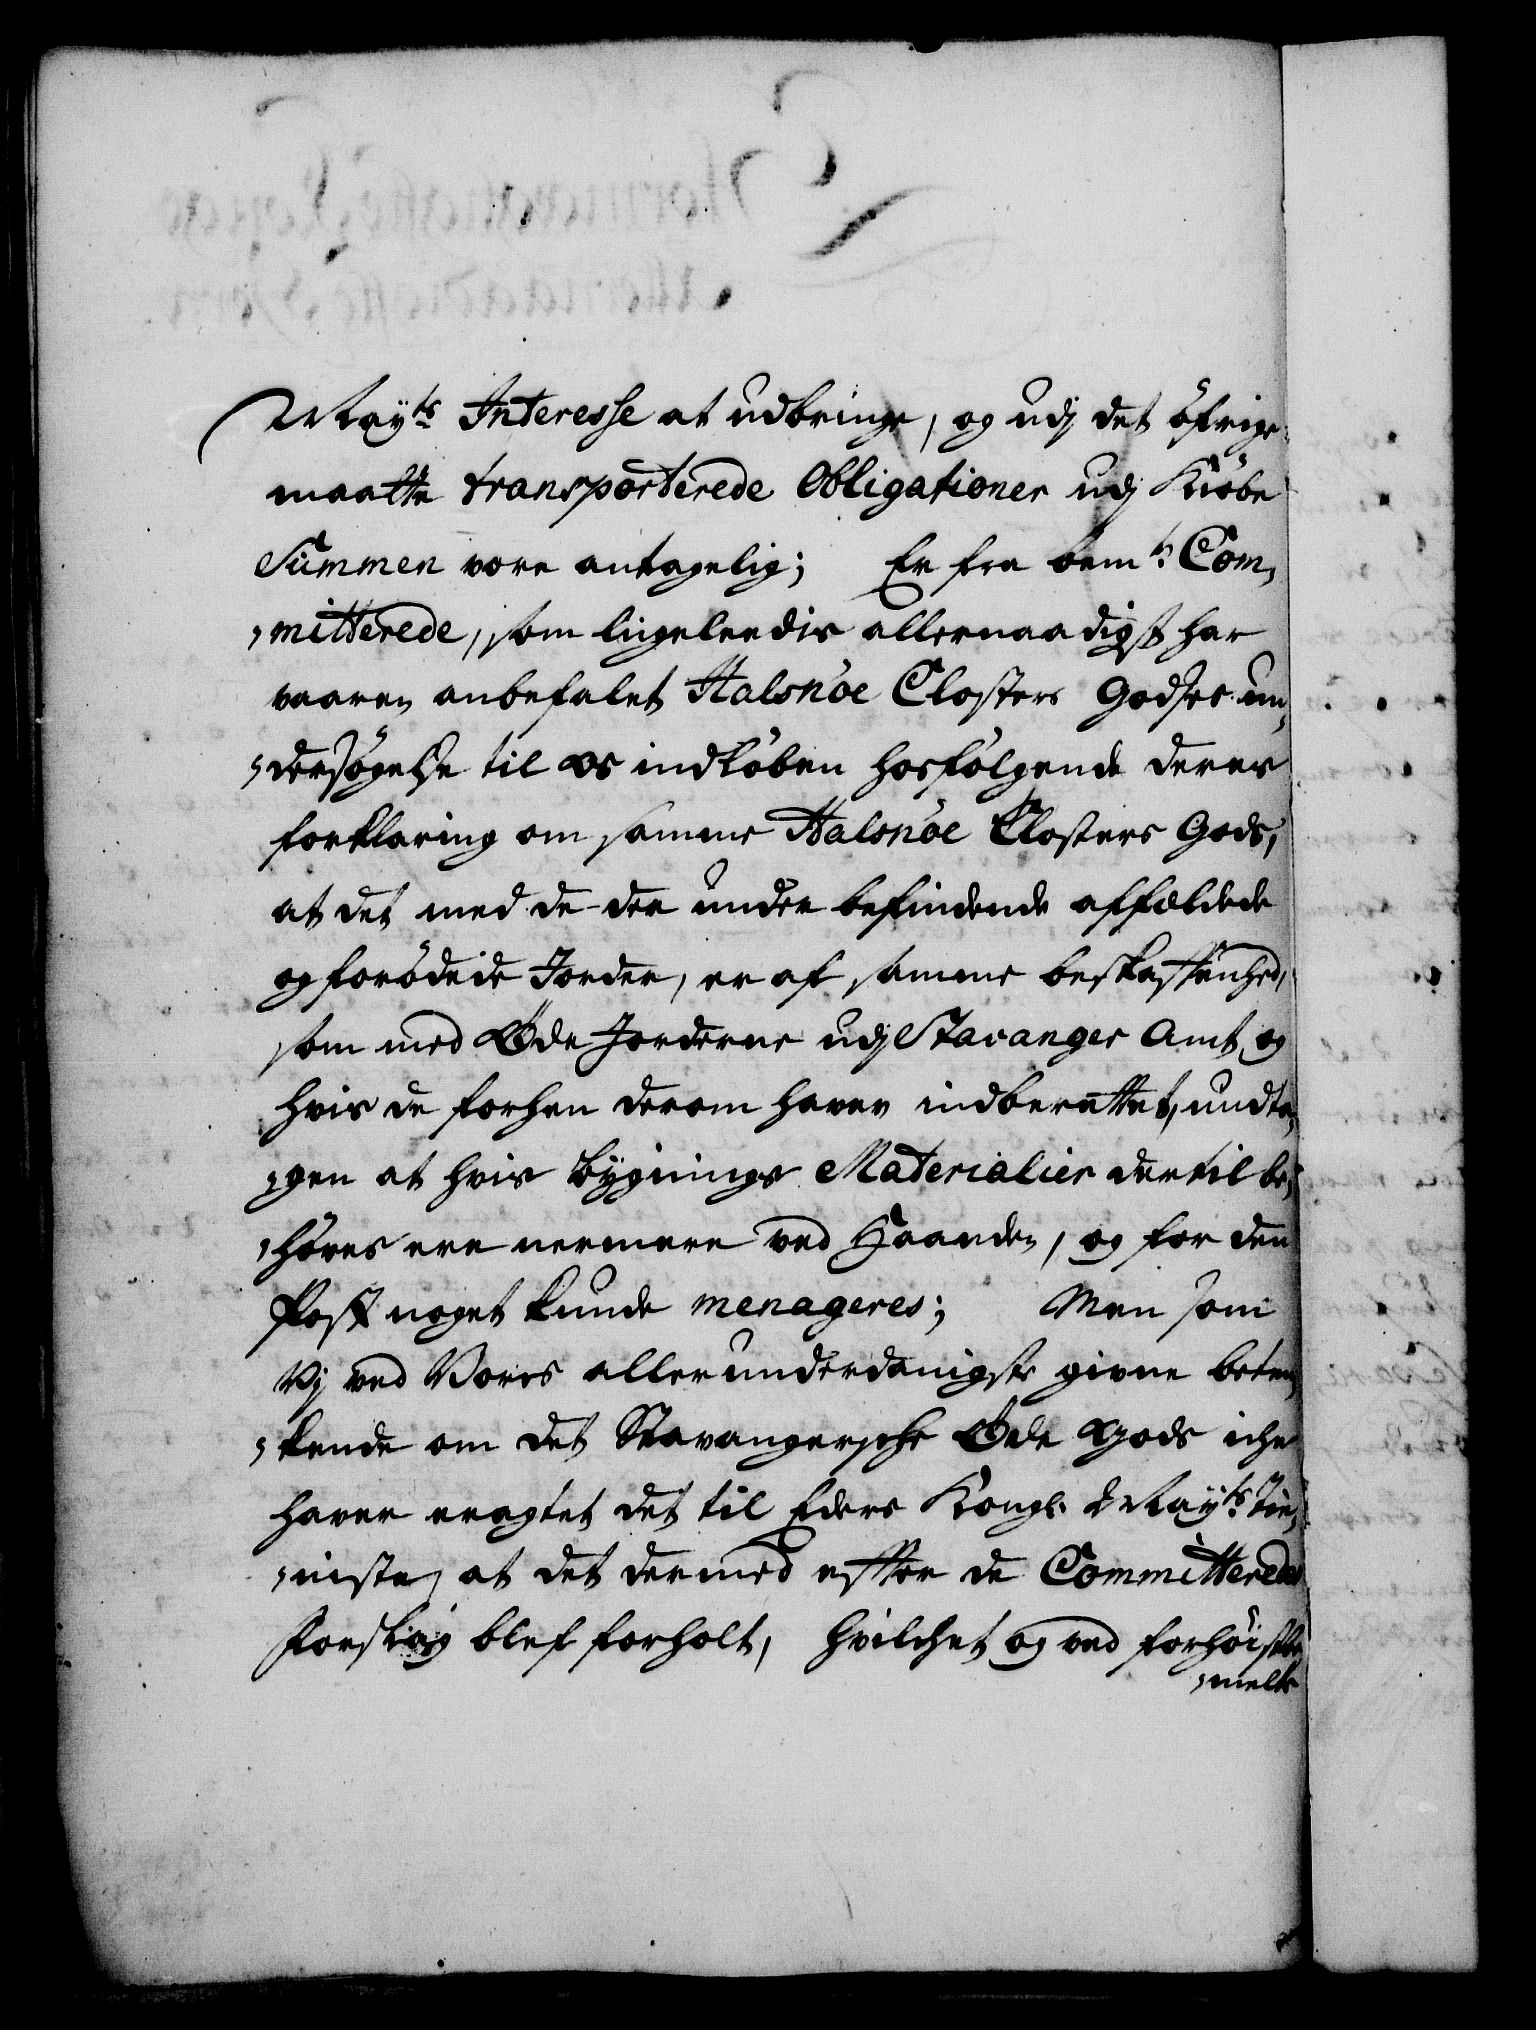 Mayts Interesse at udbringe, og udj det öfrige
maatte transporterede Obligationer udj Kiöbe
Summen vere antagelig; Er fra bemte Com,
,mitterede, som ligeleedis allernaadigst har
vaaren anbefalet Halsnöe Closters Godses un,
,dersögelse til os indköben hosfölgende deres
forklaring om samme Halsnöe Closters Gods,
at det med de der under befindende affældede
og forödede Jorder, er af samme beskaffenhed,
som med Öde Jorderne udj Stavanger Amt, og
hvis de forhen derom haver indberettet, undta,
,gen at hvis Bygnings Materialier dertil be,
,höves ere nermere ved Haanden, og for den
Post noget kunde menageres; Men som
Vj ved Vores allerunderdanigste givne beten,
,kende om det Stavangersche Öde Gods iche
haver eragtet det til Eders Kongl. Mayts tie,
,niste, at det dermed efter de Committeredes
Forslag blef forholt, hvilchet og ved forhöistbe,
,melte